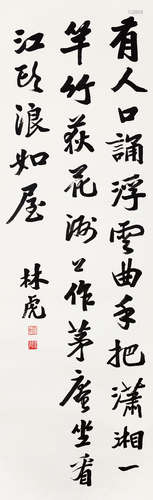 有人口誦浮雲曲手把瀟湘一
竿竹荻花洲上作茅庵坐看
江頭浪如屋
林虎